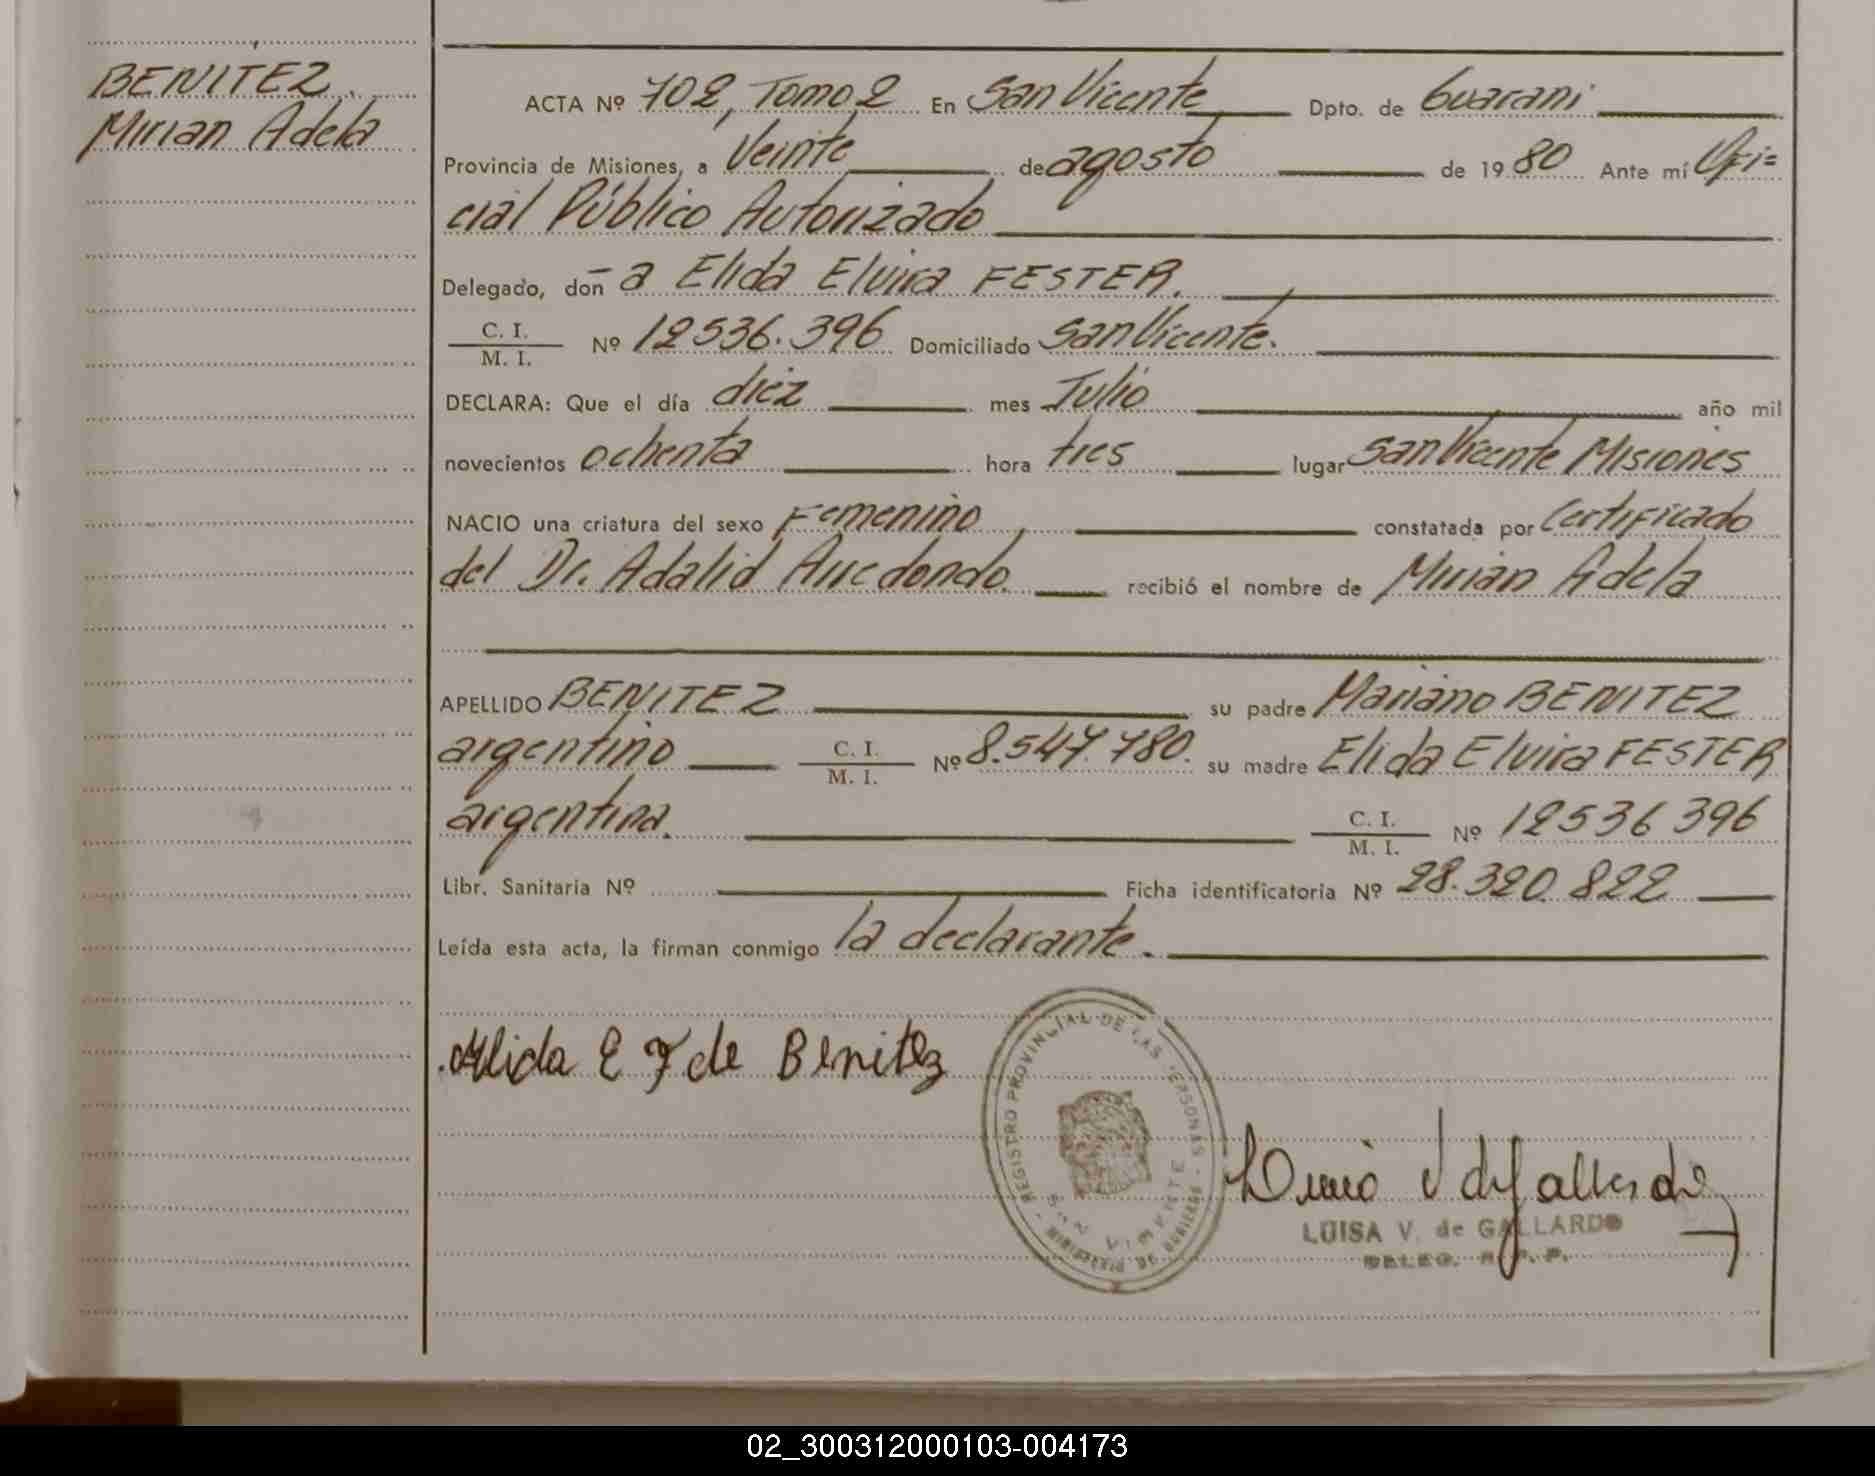 BENITEZ
Mirian Adela
ACTA Nº 702, Tomo 2 En San Vicente Dpto. de Guarani
Provincia de Misiones, a Veinte de agosto de 19 80 Ante mí Ofi=
cial Público Autorizado
Delegado, don a Elida Elvira FESTER.
C. I.
M. I.
Nº 12536.396 Domiciliado San Vicente.
DECLARA: Que el día diez mes Julio año mil
novecientos ochenta hora tres lugar San Vicente Misiones
NACIO una criatura del sexo Femenino, constatada por Certificado
del Dr. Adalid Arredondo. recibió el nombre de Mirian Adela
APELLIDO BENITEZ su padre Mariano BENITEZ
argentino C. I. M. I. Nº 8.547.780. su madre Elida Elvira FESTER
argentina. C. I. M. I. Nº 12536396
Libr. Sanitaria Nº Ficha identificatoria Nº 28.320.822
Leída esta acta, la firman conmigo la declarante.
Elida E F de Benitez
REGISTRO PROVINCIAL DE LAS PERSONAS
SAN VICENTE
Luisa V de Gallardo
LUISA V. de GALLARDO
DELEG. R. P. P.
02_300312000103-004173